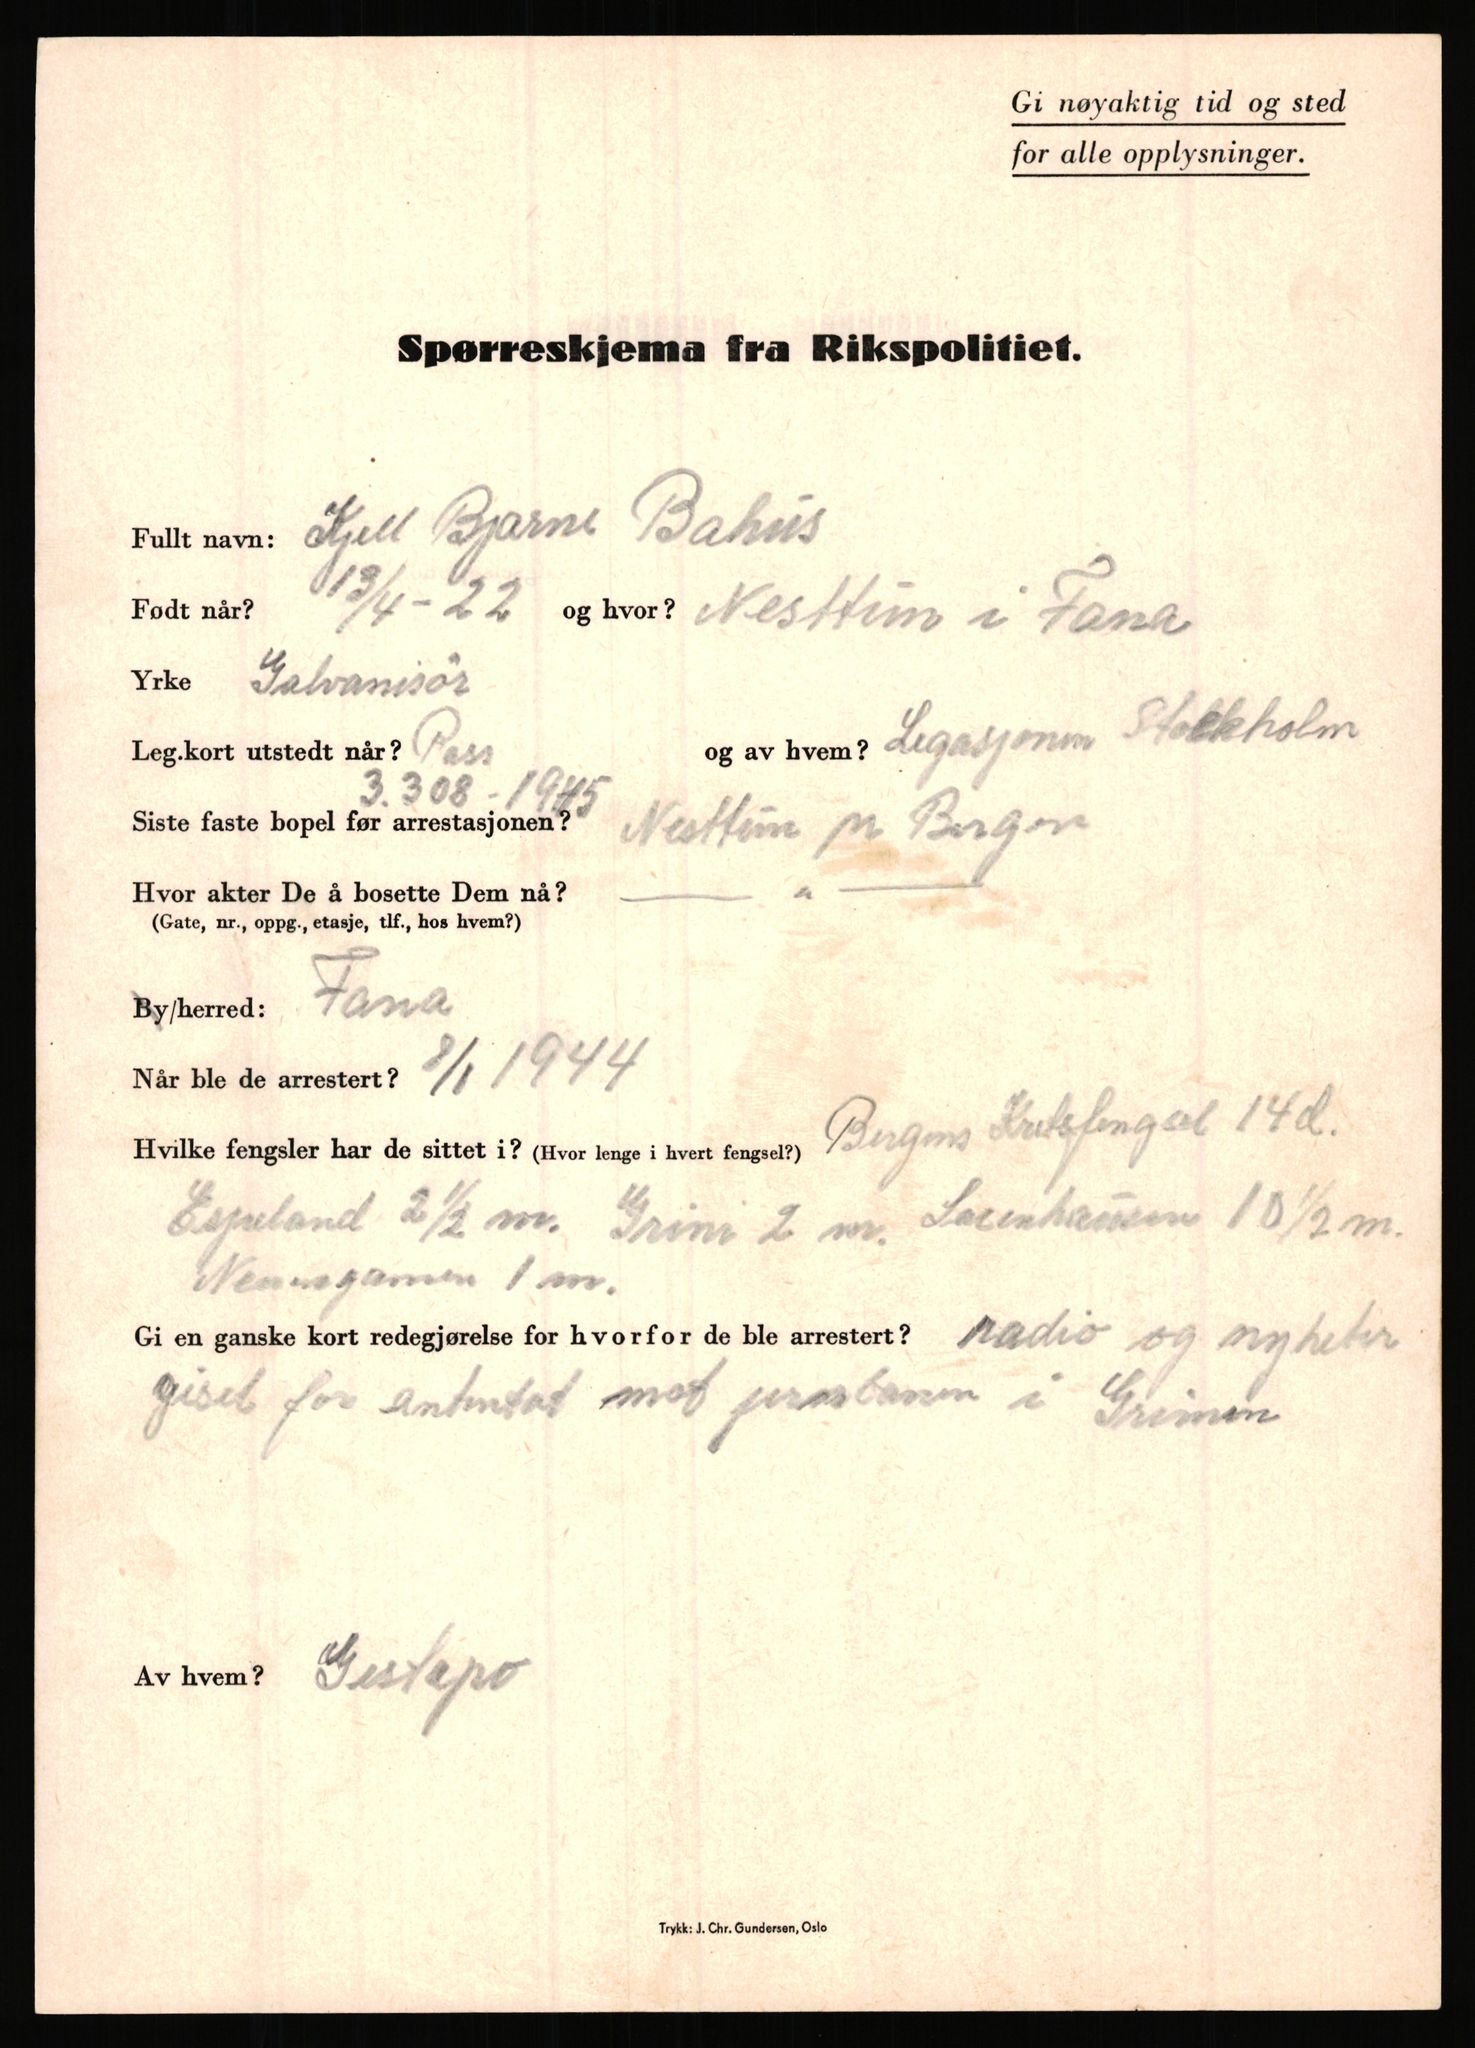 Gi nøyaktig tid og sted
for alle opplysninger.
Spørreskjema fra Rikspolitiet.
Fullt navn: Kjell Bjarne Bahus
Født når? 13/4-22 og hvor? Nesttun i Fana
Yrke Galvanisör
Leg.kort utstedt når? Pass og av hvem? Legasjonen Stockholm
3.308-1945
Siste faste bopel før arrestasjonen? Nesttun pr Bergen
Hvor akter De å bosette Dem nå? — " —
(Gate, nr., oppg., etasje, tlf., hos hvem?)
By/herred: Fana
Når ble de arrestert? 8/1 1944
Hvilke fengsler har de sittet i? (Hvor lenge i hvert fengsel?) Bergens Kretsfengsel 14 d.
Espeland 2 1/2 m. Grini 2 m. Sacenhausen 10 1/2 m.
Neuengamen 1 m.
Gi en ganske kort redegjørelse for hvorfor de ble arrestert? radio og nyheter
gisel for antentat mot jernbanen i Grimen
Av hvem? Gestapo
Trykk: J. Chr. Gundersen, Oslo